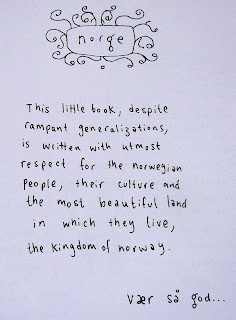 norge
This little book, despite
rampant generalizations,
is written with utmost
respect for the norwegian
people, their culture and
the most beautiful land
in which they live,
the kingdom of norway.
Vær så god...